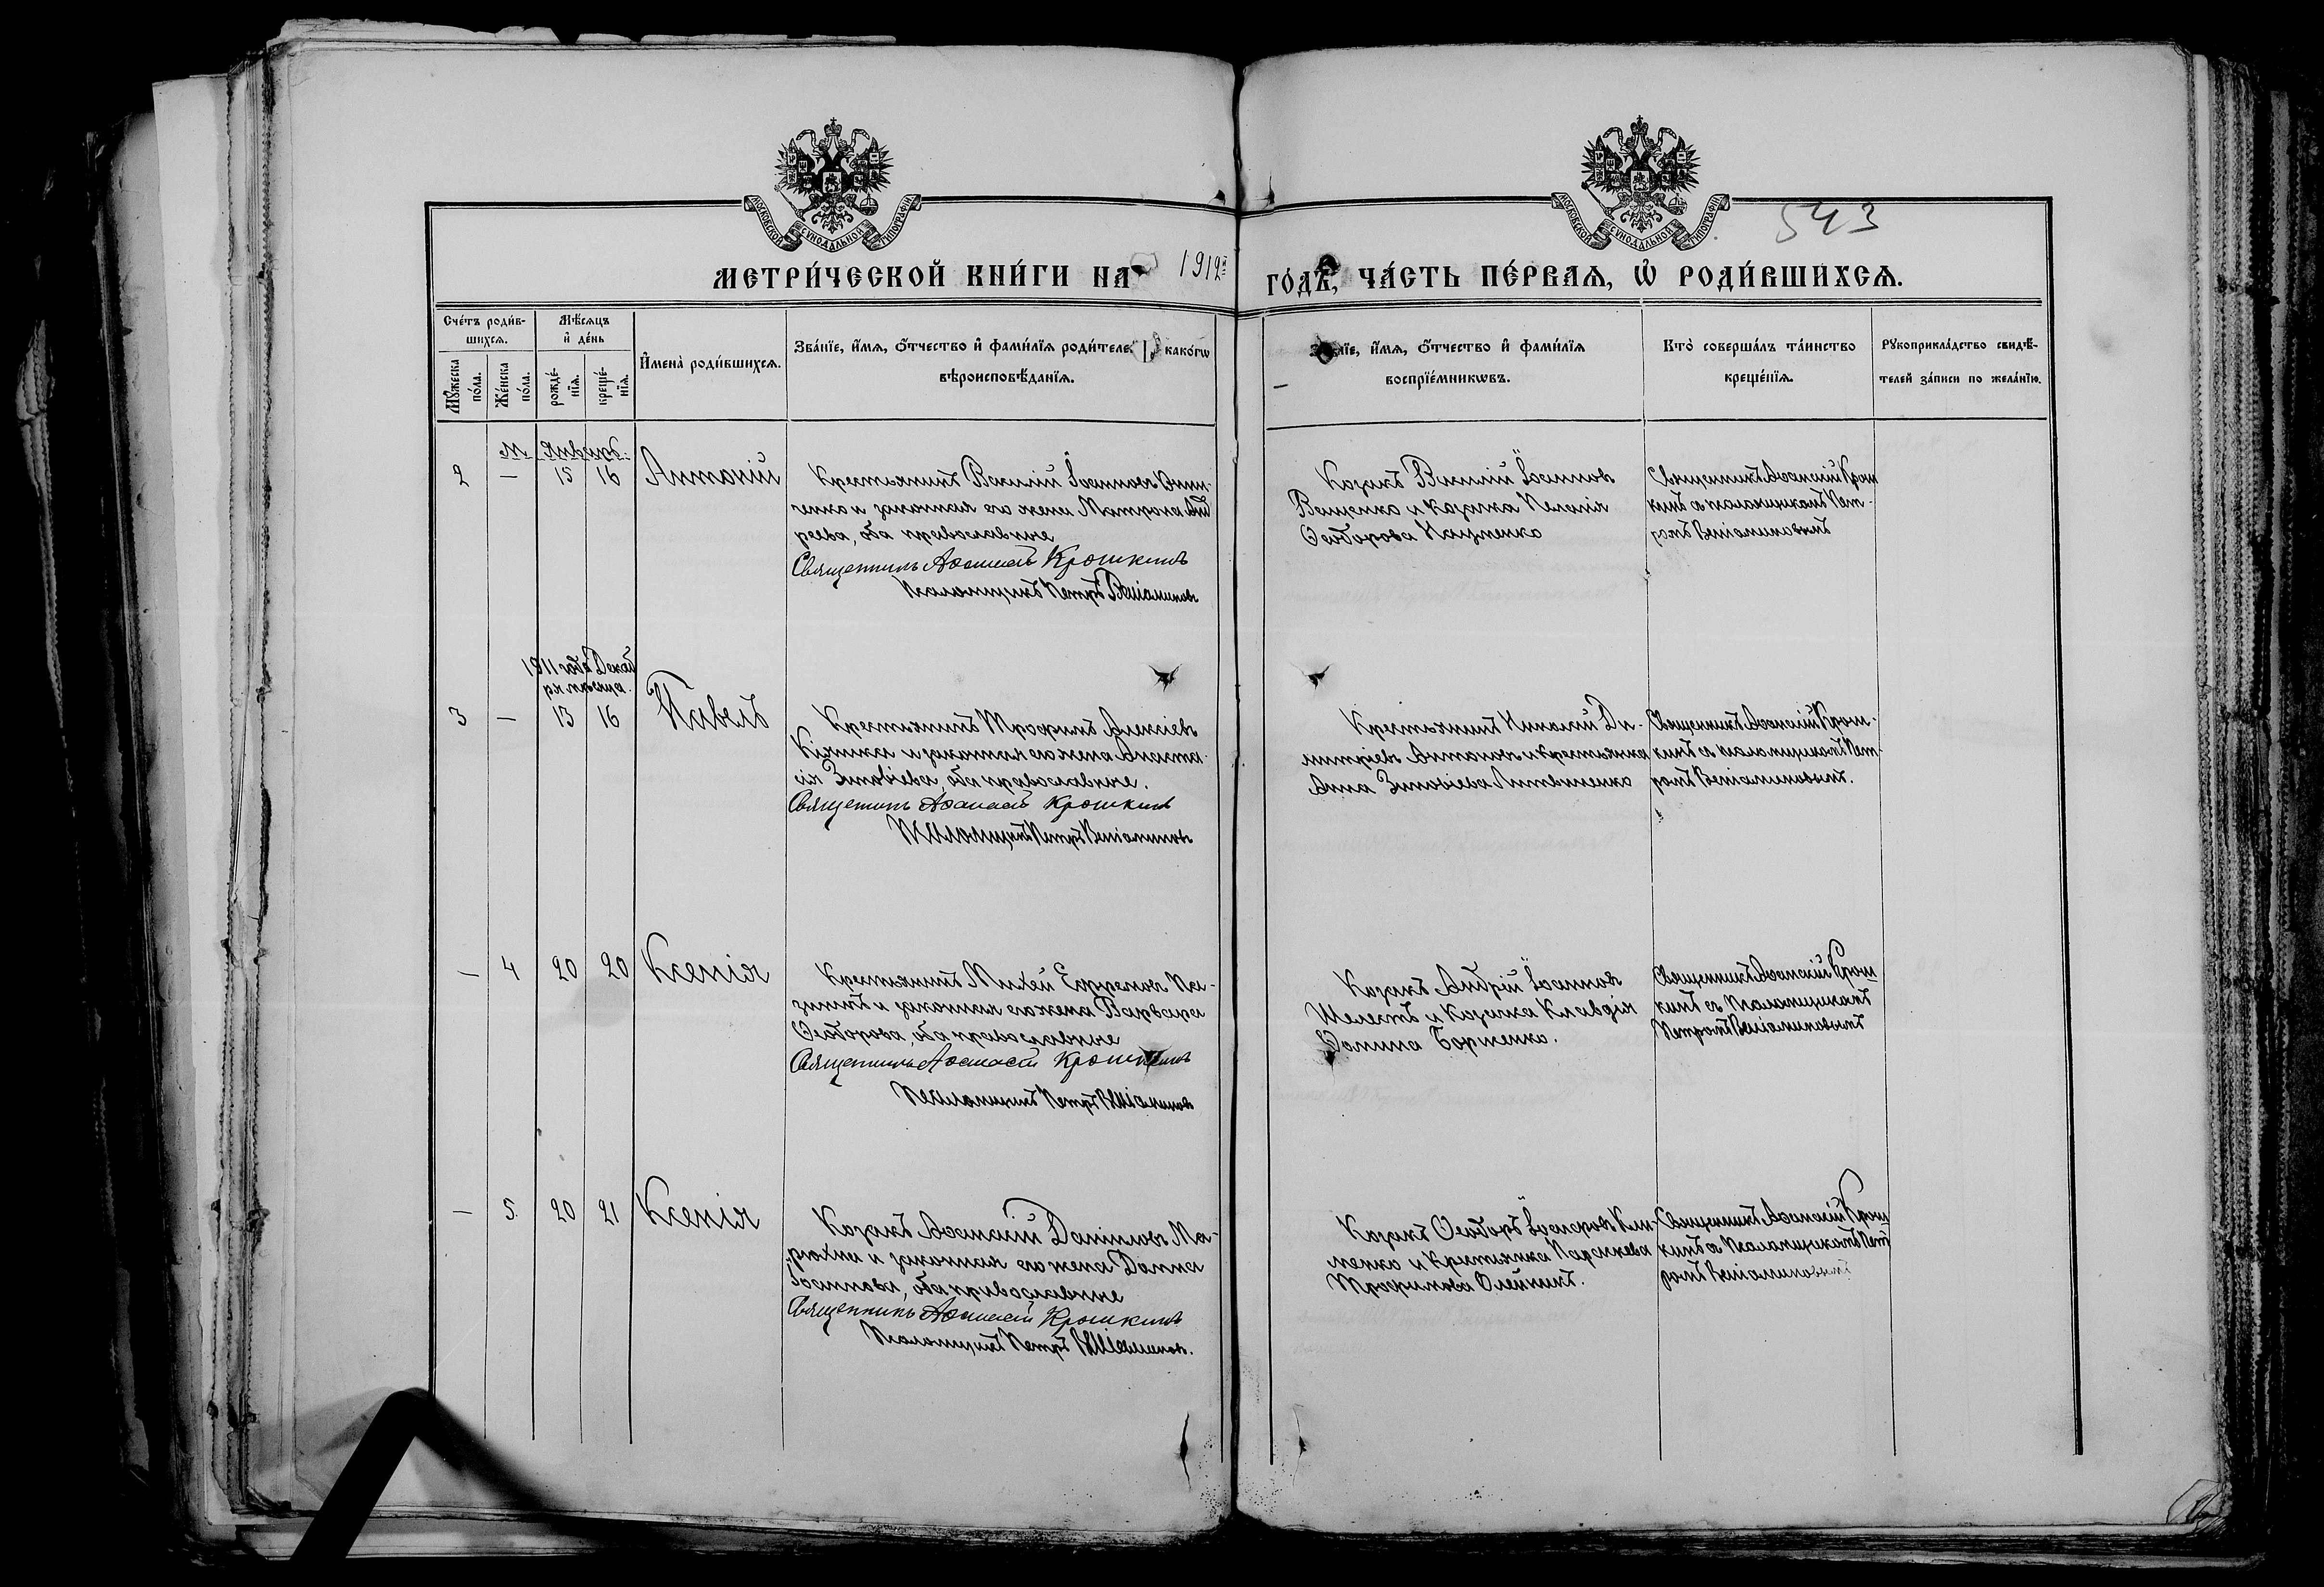 МОСКОВСКОЙ СѴНОДАЛЬНОЙ ТИПОГРАФІИ
МОСКОВСКОЙ СѴНОДАЛЬНОЙ ТИПОГРАФІИ
543
МЕТРИ́ЧЕСКОЙ КНИ́ГИ НА 1912й ГО́ДЪ, ЧА́СТЬ ПЕ́РВАЯ, Ѡ҆ РОДИ́ВШИХСЯ.
Сче́тъ роди́в-
шихся.
Мꙋ́жеска по́ла.
Же́нска по́ла.
Мѣ́сяцъ
и҆ де́нь
рожде́-
нїя.
креще́-
нїя.
И҆мена̀ роди́вшихся.
Зва́нїе, и҆́мя, ѻ҆́тчество и҆ фами́лїя роди́теле како́гѡ
вѣроисповѣ́данїя.
нїе, и҆́мя, ѻ҆́тчество и҆ фами́лїя
воспрїе́мникѡвъ.
Кто̀ соверша́лъ та́инство
креще́нїя.
Рꙋкоприкла́дство свидѣ́-
телей за́писи по жела́нїю.
М. Январь.
2 — 15 16 Антоній
Крестьянинъ Василій Іоанновъ Онищ-
ченко и законная его жена Матрона Анд
реева, оба православные
Священникъ Аѳанасій Крошкинъ
Псаломщикъ Петръ Веніаминовъ
Козакъ Василій Іоанновъ
Ващенко и козачка Пелагія
Ѳеодорова Науменко
Священникъ Аѳанасій Крош
кинъ съ псаломщикомъ Пет-
ромъ Веніаминовымъ
1911 года Декаб
ря мѣсяца.
3 — 13 16 Павелъ
Крестьянинъ Трофимъ Алексіевъ
и законная его жена Анаста-
сія Зиновіева, оба православные.
Священникъ Аѳанасій Крошкинъ
Псаломщикъ Петръ Веніаминовъ
Крестьянинъ Николай Ди-
митріевъ Антоновъ и крестьянка
Анна Зиновіева Литвиненко
Священникъ Аѳанасій Крош-
кинъ съ псаломщикомъ Пет-
ромъ Веніаминовымъ.
— 4 20 20 Ксенія
Крестьянинъ Михей Ефремовъ
и законная его жена Варвара
Ѳеодорова, оба православные
Священникъ Аѳанасій Крошкинъ
Псаломщикъ Петръ Веніаминовъ
Козакъ Андрій Іоанновъ
Шелестъ и козачка Клавдія
Ѳомина Борженко.
Священникъ Аѳанасій Крош
кинъ съ Псаломщикомъ
Петромъ Веніаминовымъ
— 5. 20 21 Ксенія
Козакъ Аѳанасій Даніиловъ Ма-
рюхна и законная его жена Домна
Іоаннова, оба православные
Священникъ Аѳанасій Крошкинъ
Псаломщикъ Петръ Веніаминовъ.
Козакъ Ѳеодоръ Іосифовъ Кли-
менко и Крестьянка Параскева
Трофимова Олейникъ.
Священникъ Аѳанасій Крош
кинъ съ Псаломщикомъ Пет
ромъ Веніаминовымъ